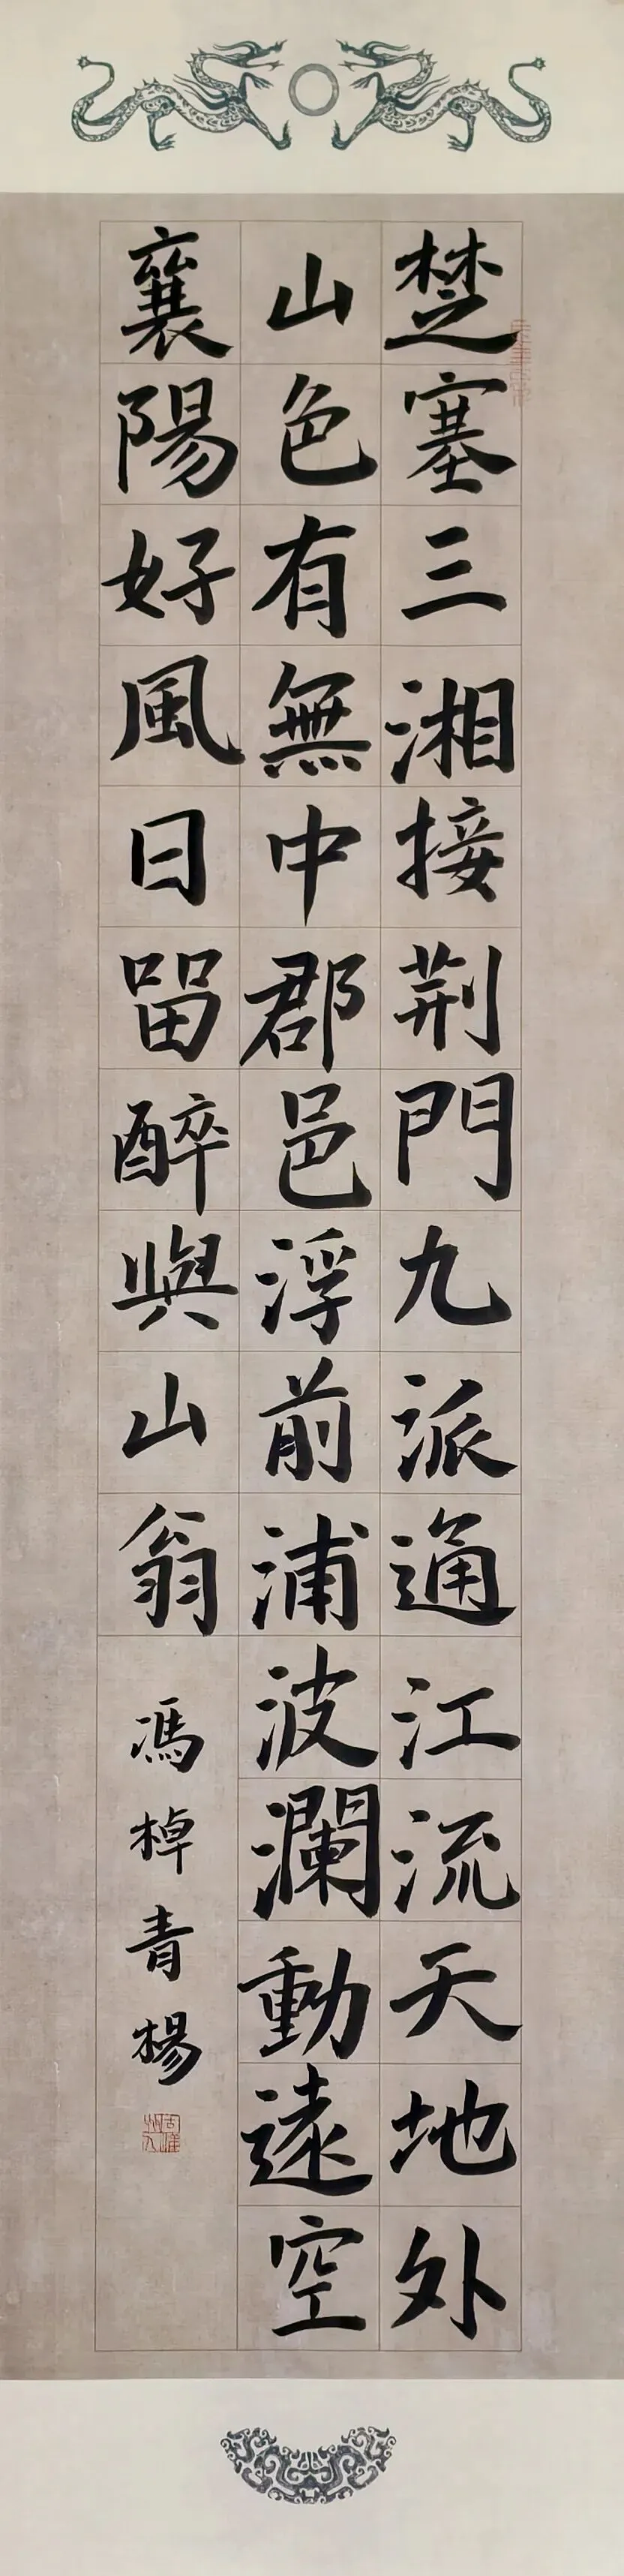 楚塞三湘接荆門九派通江流天地外
山色有無中郡邑浮前浦波瀾動遠空
襄陽好風日留醉與山翁
馮棹青楊